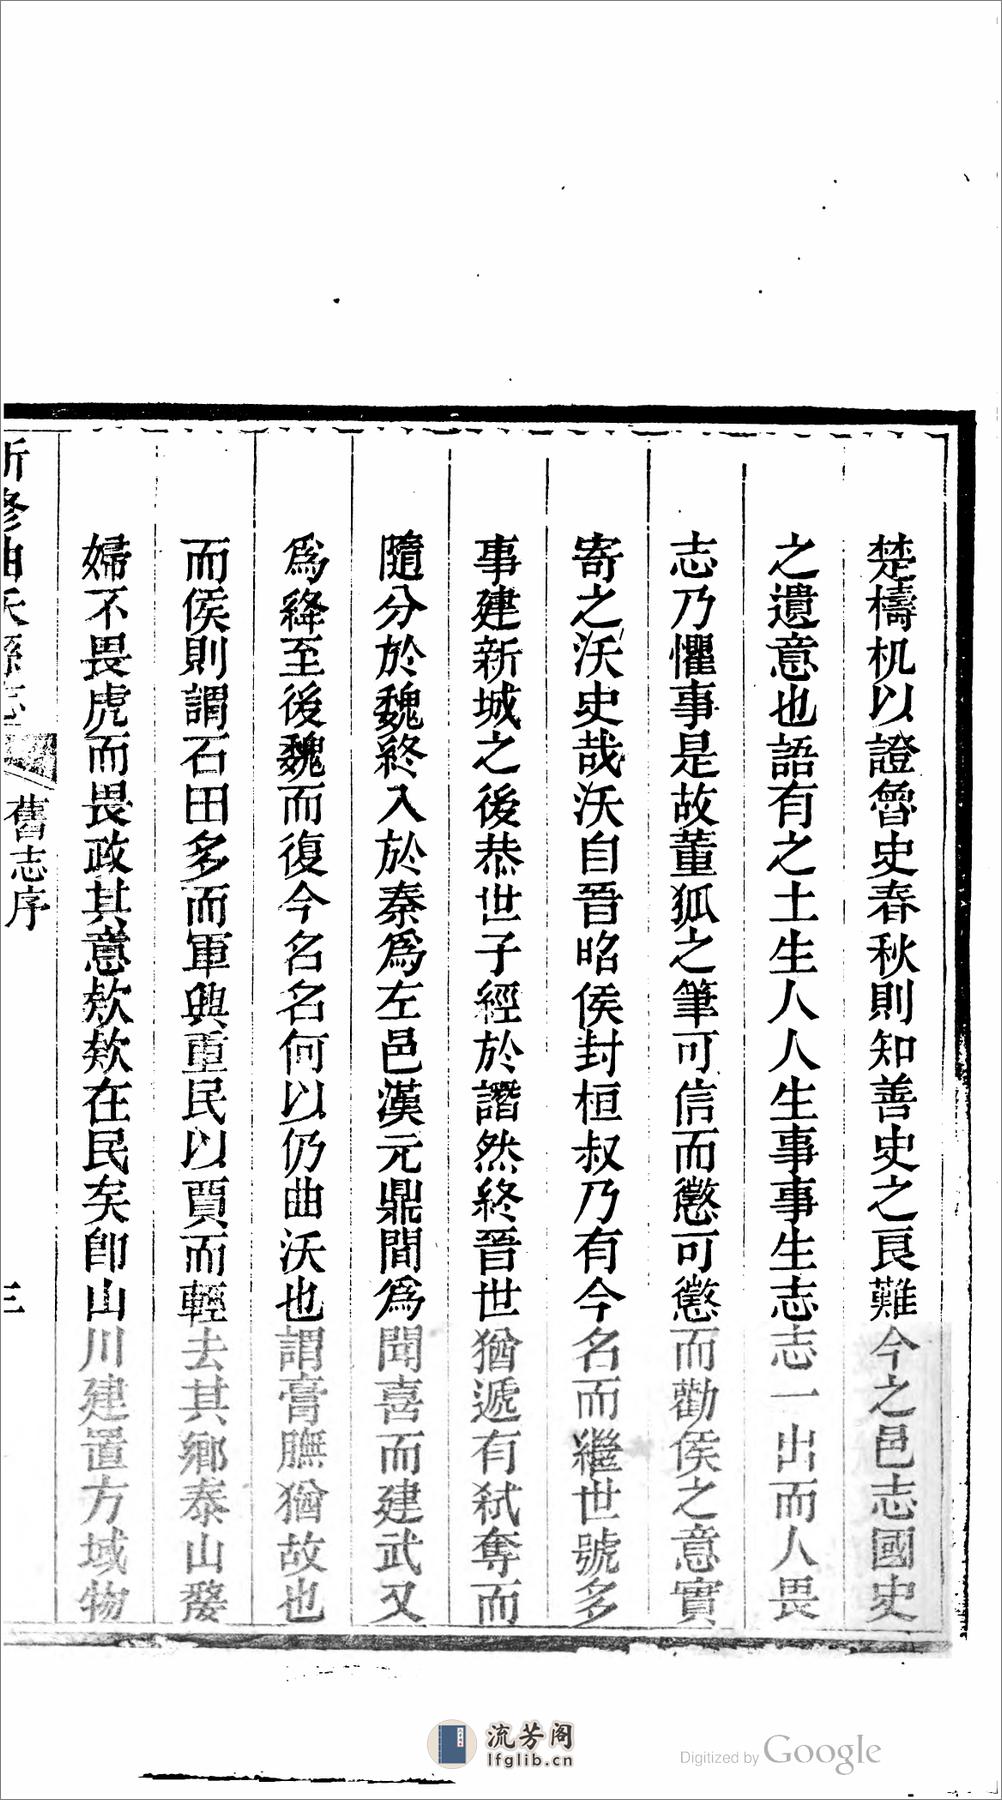 楚檮杌以證魯史春秋則知善史之良難今之邑志國史
之遺意也語有之土生人人生事事生志志一出而人畏
志乃懼事是故董狐之筆可信而懲可懲而勸侯之意實
寄之沃史哉沃自晉昭侯封桓叔乃有今名而繼世號多
事建新城之後恭世子經於譖然終晉世猶遞有弑奪而
隨分於魏終入於秦爲左邑漢元鼎間爲聞喜而建武又
爲絳至後魏而復今名名何以仍曲沃也謂膏膴猶故也
而侯則謂石田多而軍興重民以賈而輕去其鄉泰山嫠
婦不畏虎而畏政其意欸欸在民矣卽山川建置方域物
新修曲沃縣志
舊志序
三
流芳阁
lfglib.cn
Digitized by Google